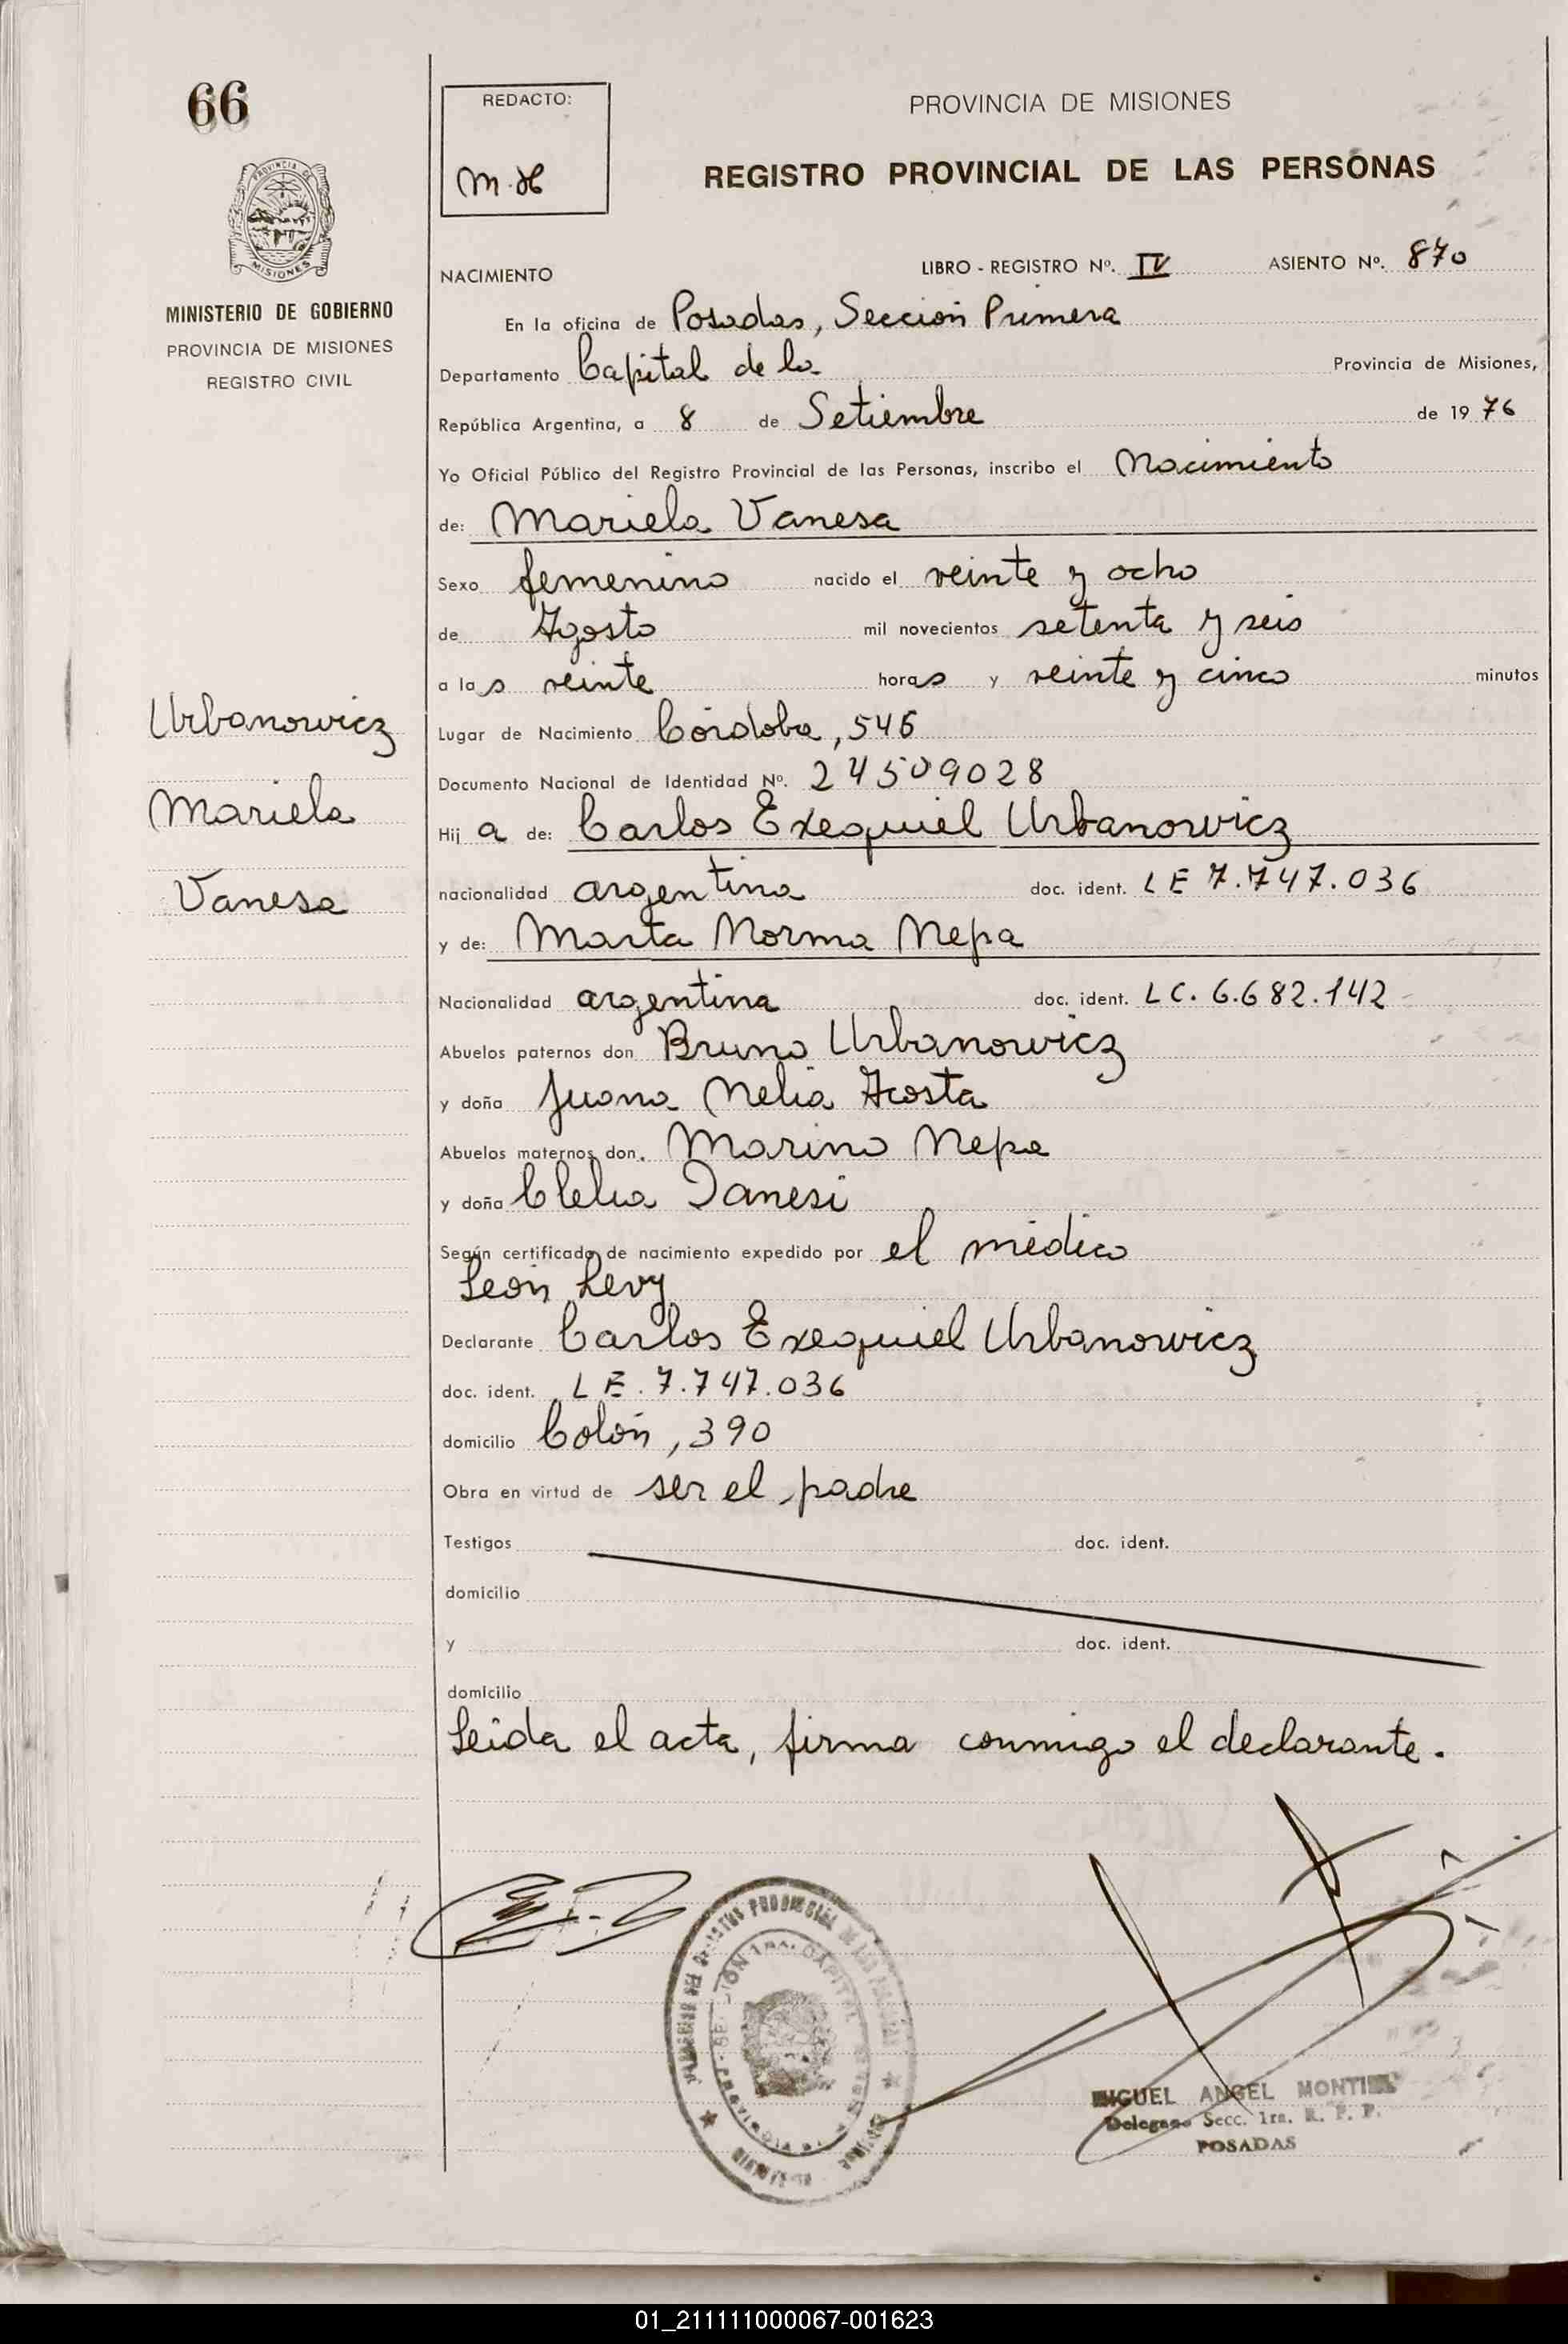 66
PROVINCIA DE
MISIONES
MINISTERIO DE GOBIERNO
PROVINCIA DE MISIONES
REGISTRO CIVIL
Urbanowicz
Mariela
Vanesa
REDACTO:
PROVINCIA DE MISIONES
REGISTRO PROVINCIAL DE LAS PERSONAS
NACIMIENTO LIBRO - REGISTRO Nº. IV ASIENTO Nº. 870
En la oficina de Posadas, Sección Primera
Departamento Capital de la Provincia de Misiones,
República Argentina, a 8 de Setiembre de 1976
Yo Oficial Público del Registro Provincial de las Personas, inscribo el Nacimiento
de: Mariela Vanesa
Sexo femenino nacido el veinte y ocho
de Agosto mil novecientos setenta y seis
a las veinte horas y veinte y cinco minutos
Lugar de Nacimiento Córdoba, 546
Documento Nacional de Identidad Nº. 24509028
Hija de: Carlos Exequiel Urbanowicz
nacionalidad argentina doc. ident. LE 7.747.036
y de: Marta Norma Nepa
Nacionalidad argentina doc. ident. LC. 6.682.142
Abuelos paternos don Bruno Urbanowicz
y doña Juana Nelia Acosta
Abuelos maternos don. Marino Nepa
y doña Clelia Danesi
Según certificado de nacimiento expedido por el médico
León Levy
Declarante Carlos Exequiel Urbanowicz
doc. ident. LE. 7.747.036
domicilio Colón, 390
Obra en virtud de ser el padre
Testigos doc. ident.
domicilio
y doc. ident.
domicilio
Leida el acta, firma conmigo el declarante.
MIGUEL ANGEL MONTIEL
Delegado Secc. 1ra. R. P. P.
POSADAS
01_211111000067-001623